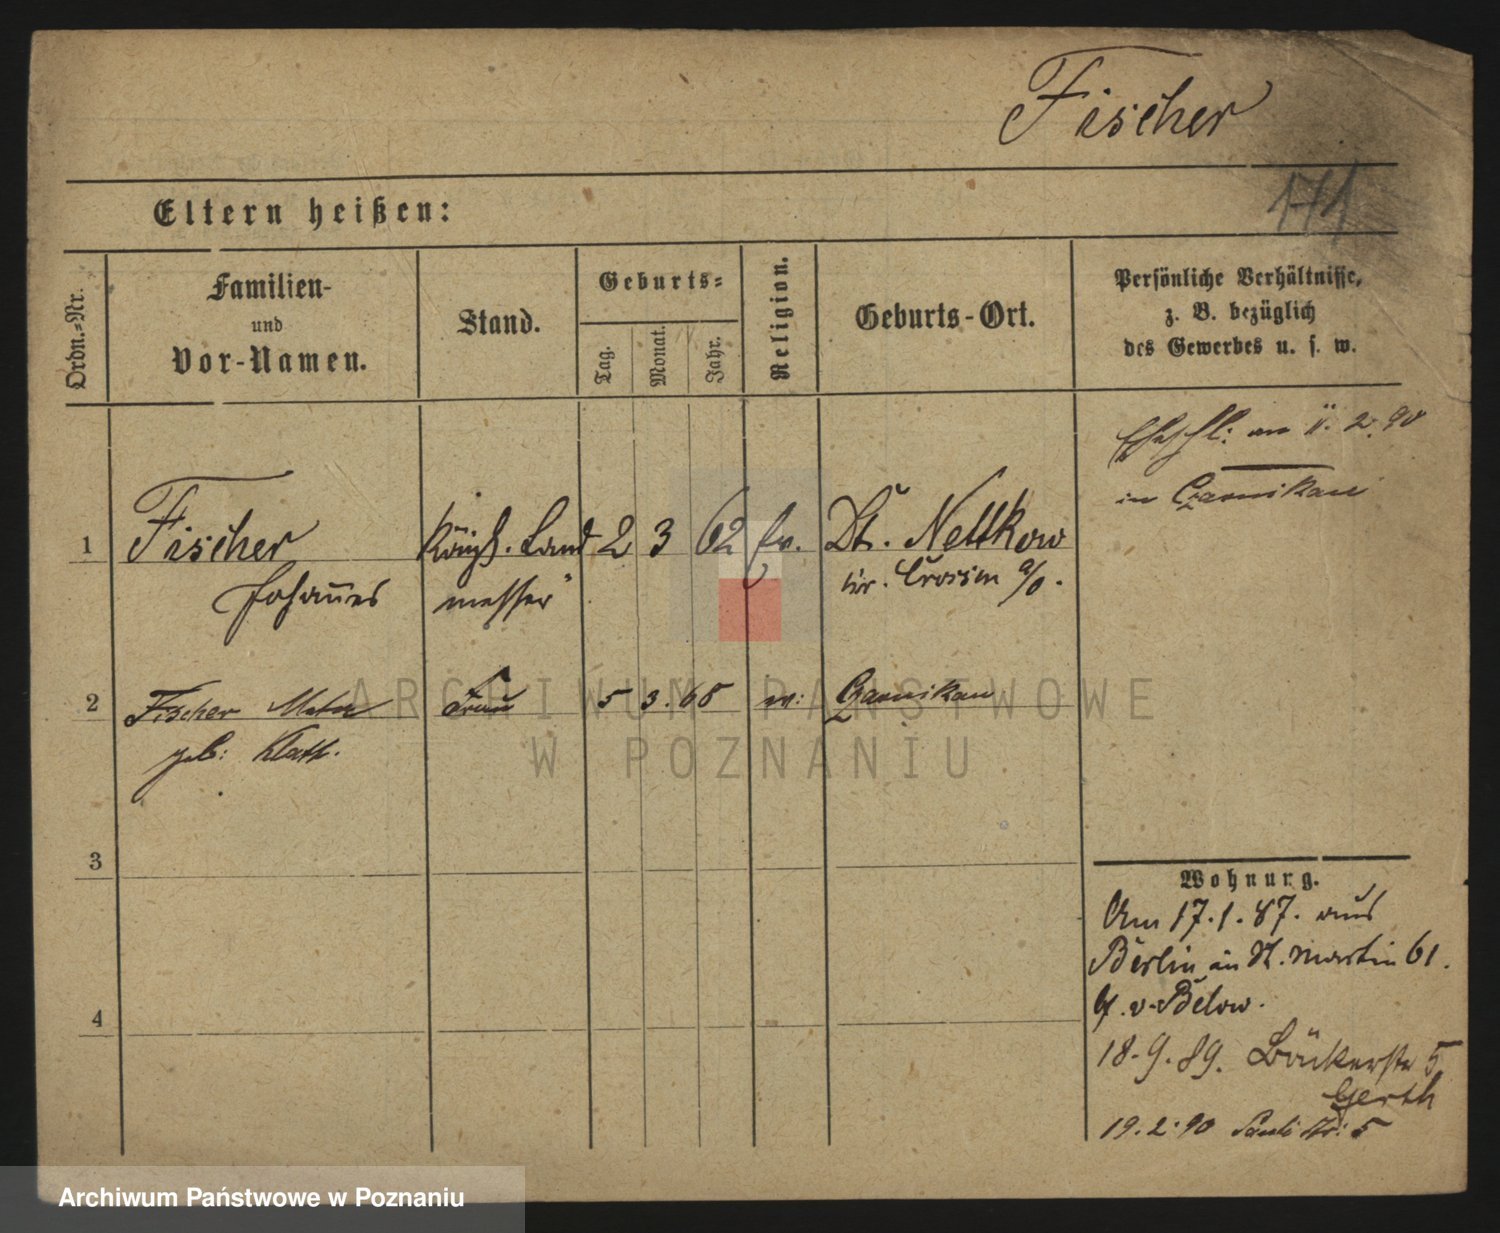 Fischer
171
Eltern heißen:
Ordn.=Nr.
Familien-
und
Vor-Namen.
Stand.
Geburts=
Tag.
Monat.
Jahr.
Religion.
Geburts-Ort.
Persönliche Verhältnisse,
z. B. bezüglich
des Gewerbes u. s. w.
Eheschl: am 11. 2. 90
in Czarnikau
1 Fischer Königl. Land 2 3 62 ev. Dt. Nettkow
Johannes messer Kr. Crossen a/O.
2 Fischer Frau 5 3. 68 Czarnikau
geb: Klatt.
3
Wohnung.
Am 17.1.87. aus
Berlin in St. Martin 61.
b. v. Below.
4
18.9.89. Bäckerstr 5
Gerth
19.2.90 Pauli Str: 5
ARCHIWUM PAŃSTWOWE
W POZNANIU
Archiwum Państwowe w Poznaniu